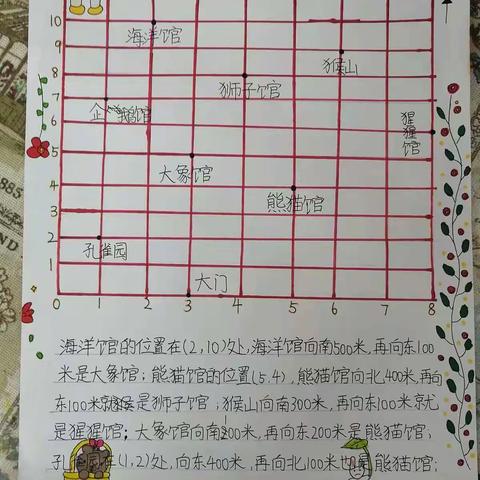 10
海洋馆
9
猴山
8
狮子馆
7
企鹅馆
6
猩猩馆
5
大象馆
4
熊猫馆
3
2
孔雀园
1
大门
0 1 2 3 4 5 6 7 8
海洋馆的位置在(2,10)处,海洋馆向南500米,再向东100
米是大象馆;熊猫馆的位置(5.4),熊猫馆向北400米,再向
东100米就是狮子馆;猴山向南300米,再向东100米就
是猩猩馆;大象馆向南200米,再向东200米是熊猫馆;
孔雀园在(1,2)处,向东400米,再向北100米也是熊猫馆;
885
ND